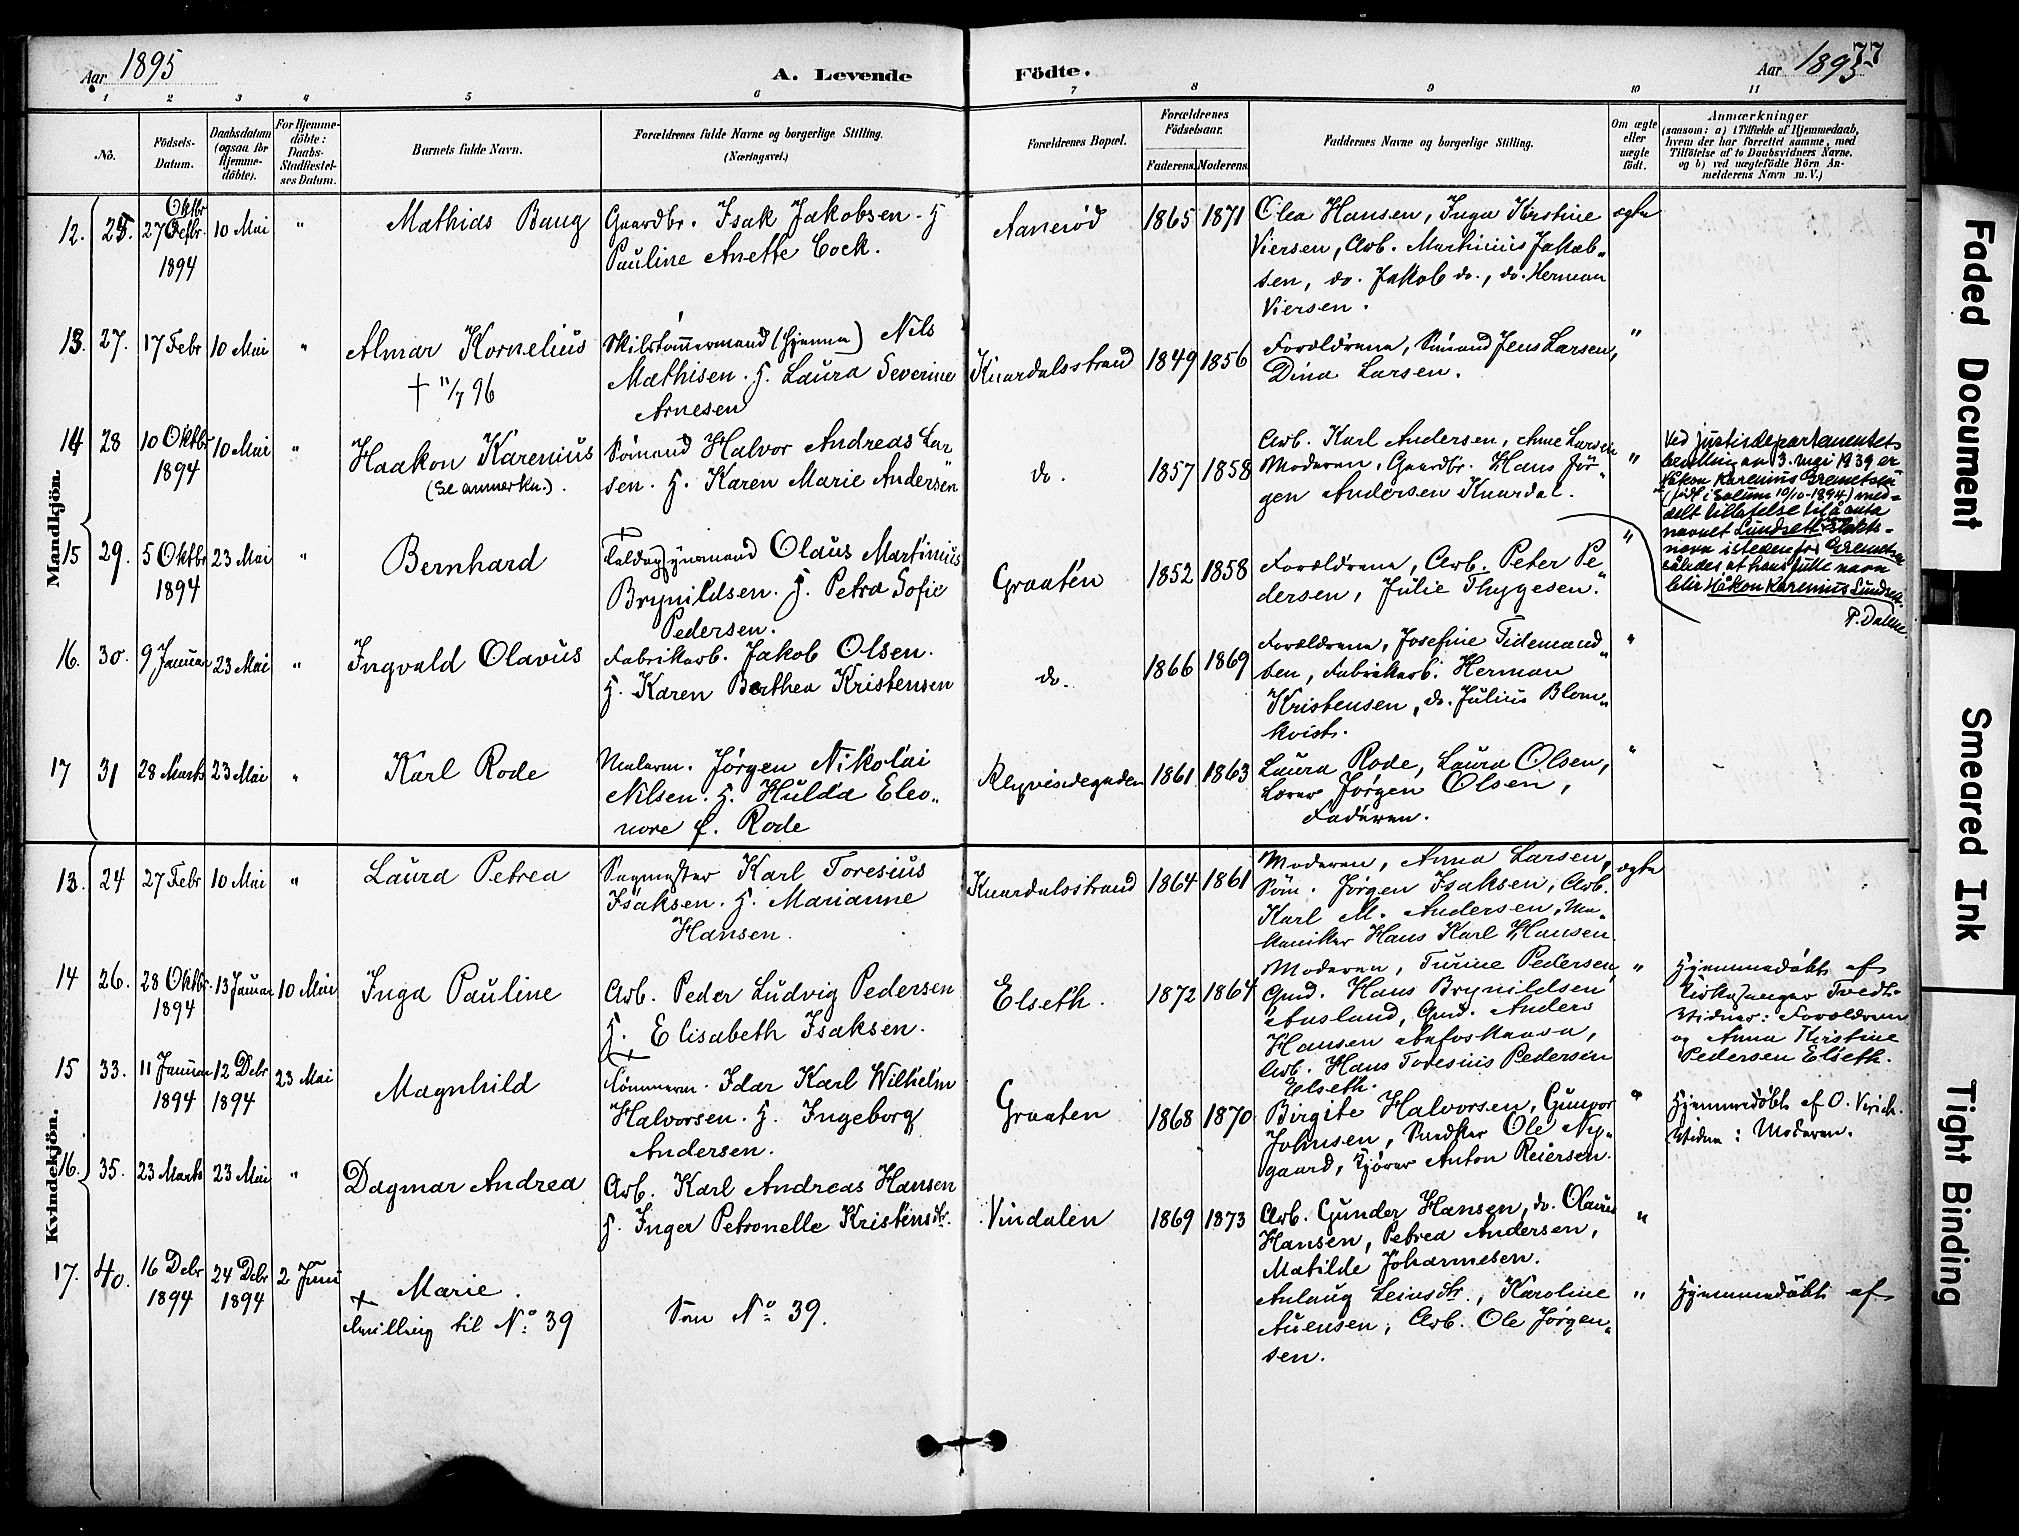 Aar 1895
A. Levende Födte.
Aar 1895
77
1 2 3 4 5 6 7 8 9 10 11
No.
Födsels-Datum.
Daabsdatum (ogsaa for Hjemme-döbte).
For Hjemme-döbte: Daabs-Stadfæstel-ses Datum.
Barnets fulde Navn.
Forældrenes fulde Navne og borgerlige Stilling.
(Næringsvei.)
Forældrenes Bopæl.
Forældrenes Födselsaar.
Faderens. Moderens.
Faddernes Navne og borgerlige Stilling.
Om ægte eller uægte födt.
Anmærkninger
(saasom: a) i Tilfælde af Hjemmedaab,
hvem der har forrettet samme, med
Tilföielse af to Daabsvidners Navne.
og b) ved uægtefödte Börn An-
melderens Navn m. V.)
Mandkjön.
12. 25. 27 Oktbr 1894 10 Mai " Mathias Baug
Gaardbr. Isak Jakobsen. H
Pauline Anette Cock.
Aanerød 1865 1871
Olea Hansen, Inga Kirstine
Viersen, Arb. Martinius Jakob-
sen, do. Jakob do., do. Herman
Viersen.
ægte
13. 27. 17 Febr 10 Mai " Almar Kornelius
† 11/7 96
Skibstømmermand (hjemme) Nils
Mathisen. H. Laura Severine
Arnesen
Knardalsstrand 1849 1856
Forældrene, Sömand Jens Larsen,
Dina Larsen.
"
14 28 10 Oktbr 1894 10 Mai " Haakon Karenius
(se anmerkn.).
Sømand Halvor Andreas Lar
sen. H. Karen Marie Andersen
do. 1857 1858
Arb. Karl Andersen, Anne Larsen
Moderen, Gaardbr. Hans Jør-
gen Andersen Knardal.
"
Ved justisdepartementets
bevilling av 3. mai 1939 er
Håkon Karenius
(født i Solum 10/10-1894) med-
delt tillatelse til å anta
navnet Lundsett slekts-
navn isteden for
således at hans fulle navn
blir Håkon Karenius Lundsett.
P. Dahle.
15 29. 5 Oktbr 1894 23 Mai " Bernhard
Olaus Martinius
Brynildsen. H. Petra Sofie
Pedersen.
Graaten 1852 1858
Forældrene, Arb. Peter Pe
dersen, Julie Thygesen.
"
16. 30. 9 Januar 23 Mai " Ingvald Olavus
Fabrikarb. Jakob Olsen.
H. Karen Berthea Kristensen
do. 1866 1869
Forældrene, Josefine Tidemand-
sen, Fabrikarb. Herman
Kristensen, do. Julius Blom-
kvist.
"
17 31 28 Marts 23 Mai " Karl Rode
Malerm. Jørgen Nikolai
Nilsen. H. Hulda Eleo-
nore f. Rode
1861 1863
Laura Rode, Laura Olsen,
Lærer Jørgen Olsen,
Faderen.
"
Kvindekjön.
13. 24 27 Febr 10 Mai " Laura Petrea
Sagmester Karl Toresius
Isaksen. H. Marianne
Hansen.
Knardalsstrand 1864 1861
Moderen, Anna Larsen,
Söm. Jørgen Isaksen, Arb.
Karl M. Andersen, Ma-
skiniker Hans Karl Hansen
ægte
14 26. 28 Oktbr. 1894 13 Januar 10 Mai Inga Pauline
Arb. Peder Ludvig Pedersen
H. Elisabeth Isaksen.
Elseth. 1872 1864
Moderen, Turine Pedersen,
Gmd. Hans Brynildsen
Aasland, Gmd. Anders
Hansen
Arb. Hans Toresius Pedersen
Elseth.
"
Hjemmedøbt af
Kirkesanger Tvedt.
Vidner: Forældrene
og Anna Kirstine
Pedersen Elseth.
15 33. 11 Januar 1894 12 Debr 1894 23 Mai Magnhild
Tømmerm. Idar Karl Wilhelm
Halvorsen. H. Ingeborg
Andersen.
Graaten 1868 1870
Birgite Halvorsen, Gunvor
Johnsen, Snedker Ole Ny-
gaard, Kjører Anton Reiersen.
"
Hjemmedøbt af O. Virich.
Vidne: Moderen.
16. 35. 23 Marts 23 Mai " Dagmar Andrea
Arb. Karl Andreas Hansen
H. Inger Petronelle Kristensdtr.
Vindalen 1869 1873
Arb. Gunder Hansen, do. Olaus
Hansen, Petrea Andersen,
Matilde Johannesen.
"
17. 40. 16 Debr 1894 24 Debr 1894 2 Juni Marie.
Tvilling til No: 39
Som No: 39.
Anlaug Leinsdtr., Karoline
Auensen, Arb. Ole Jørgen-
sen.
"
Hjemmedøbt af
Faded Document
Smeared Ink
Tight Binding